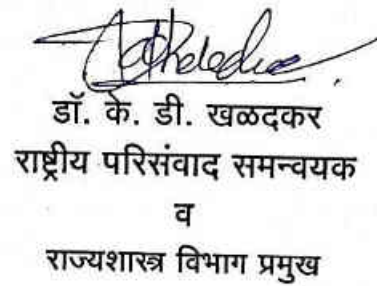 डॉ. के. डी. खळदकर
राष्ट्रीय परिसंवाद समन्वयक
व
राज्यशास्त्र विभाग प्रमुख